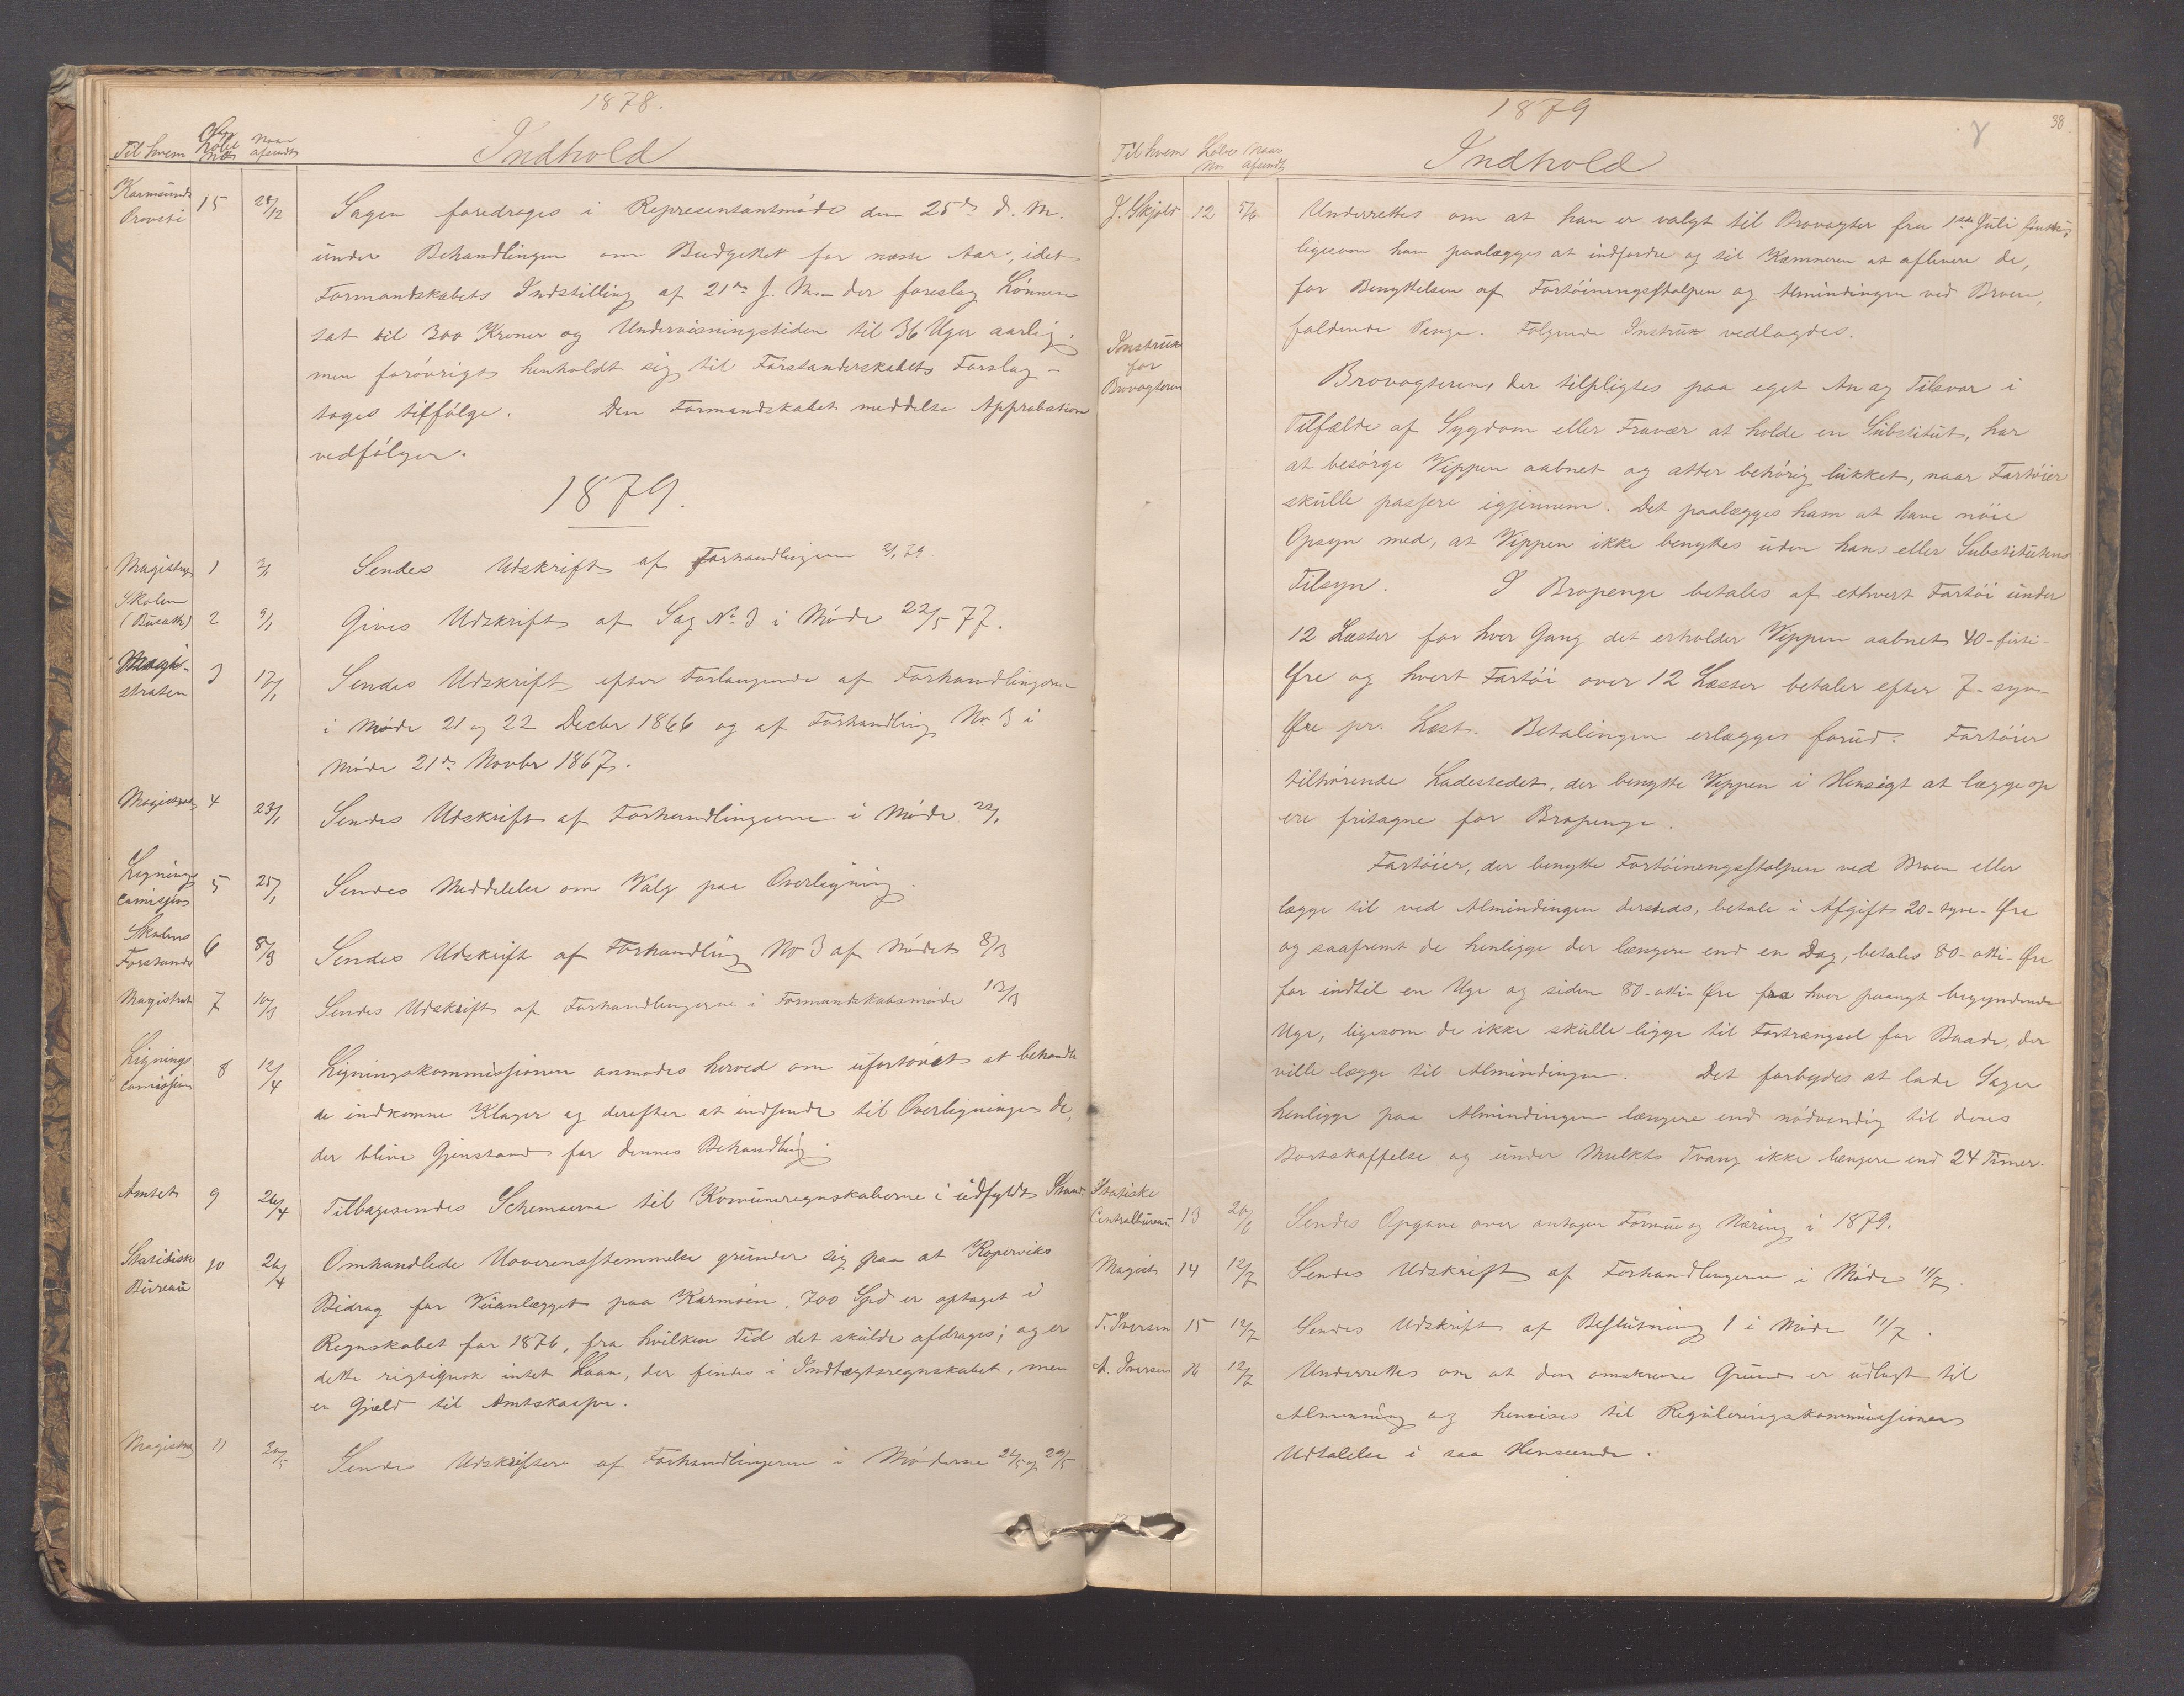 1878.
Til hvem Løbe No Naar afsendt Indhold
Karmsunds Provsti 15 28/12 Sagen foredroges i Representantmøde den 25de d. M.
under Behandlingen om Budgettet for næste Aar, idet
Formandskabets Indstilling af 21de f. M. der foreslog Lønnen
sat til 300 Kroner og Undervisningstiden til 36 Uger aarlig,
men forøvrigt henholdt sig til Forstanderskabets Forslag -
toges tilfølge. Den Formandskabet meddelte Approbation
vedfølger.
1879.
Magistrat 1 3/1 Sendes Udskrift af Forhandlingerne 2/1 79.
Skolen
2 9/1 Gives Udskrift af Sag No 3 i Møde 22/5 77.
Magi-
straten 3 17/1 Sendes Udskrift efter Forlangende af Forhandlingerne
i Møde 21 og 22 Decbr 1866 og af Forhandling No. 3 i
Møde 21de Novbr 1867.
Magistrat 4 23/1 Sendes Udskrift af Forhandlingerne i Møde 22/1
Lignings
Comission 5 25/1 Sendes Meddelelse om Valg paa Overligning.
Skolens
Forstander 6 8/3 Sendes Udskrift af Forhandling No 3 af Mødet 8/3
Magistrat 7 10/3 Sendes Udskrift af Forhandlingerne i Formandskabsmøde 13/3
Lignings
Comission 8 12/4 Ligningskommissionen anmodes herved om ufortøvet at behandle
de indkomne Klager og derefter at indsende til Overligningen de,
der blive Gjenstand for dennes Behandling.
Amtet 9 26/4 Tilbagesendes Schemaerne til Komuneregnskaberne i udfyldt Stand.
Statistiske
Bureau 10 26/4 Omhandlede Uoverensstemmelse grunder sig paa at Koperviks
Bidrag for Veianlægget paa Karmøen, 700 Spd er optaget i
Regnskabet for 1876, fra hvilken Tid det skulde afdrages; og er
dette rigtignok intet Laan, der findes i Indtægtsregnskabet, men
en Gjæld til Amtskassen.
Magistrat 11 30/5 Sendes Udskrifter af Forhandlingerne i Møderne 24/5 og 29/5
1879
38
Til hvem Løbe No Naar afsendt Indhold
J. Skjold 12 5/6 Underrettes om at han er valgt til Brovogter fra 1ste Juli
ligesom han paalægges at indfordre og til Kæmneren at aflevere de,
for Benyttelsen af Fortøiningsstolpen og Almindingen ved Broen,
faldende Penge. Følgende Instrux vedlagdes.
Instrux
for
Brovogteren
Brovogteren, der tilpligtes paa eget An og Tilsvar i
Tilfælde af Sygdom eller Fravær at holde en Substitut, har
at besørge Vippen aabnet og atter behørig lukket, naar Fartøier
skulle passere igjennem. Det paalægges ham at have nøie
Opsyn med, at Vippen ikke benyttes uden hans eller Substitutens
Tilsyn. I Bropenge betales af ethvert Fartøi under
12 Læster for hver Gang det erholder Vippen aabnet 40-firti-
Øre og hvert Fartøi over 12 Læster betaler efter 7-syv-
Øre pr. Læst. Betalingen erlægges forud. Fartøier
tilhørende Ladestedet, der benytte Vippen i Hensigt at lægge op
ere fritagne for Bropenge.
Fartøier, der benytte Fortøiningsstolpen ved Broen eller
lægge til ved Almindingen dersteds, betale i Afgift 20-tyve-Øre
og saafremt de henligge der længere end en Dag, betales 80-otti-Øre
for indtil en Uge og siden 80-otti-Øre for hver paany begyndende
Uge, ligesom de ikke skulle ligge til Fortrængsel for Baade, der
ville lægge til Almindingen. Det forbydes at lade Sager
henligge paa Almindingen længere end nødvendig til deres
Bortskaffelse og under Mulkts Tvang ikke længere end 24 Timer.
Statiske
Centralbureau 13 20/6 Sendes Opgave over antagen Formue og Næring i 1879.
Magist 14 12/7 Sendes Udskrift af Forhandlingerne i Møde 11/7.
T. Iversen 15 12/7 Sendes Udskrift af Beslutning 1 i Møde 11/7.
A. Iversen 16 12/7 Underrettes om at den omskrevne Grund er udlagt til
Almenning og henvises til Reguleringskommissionens
Udtalelse i saa Henseende.